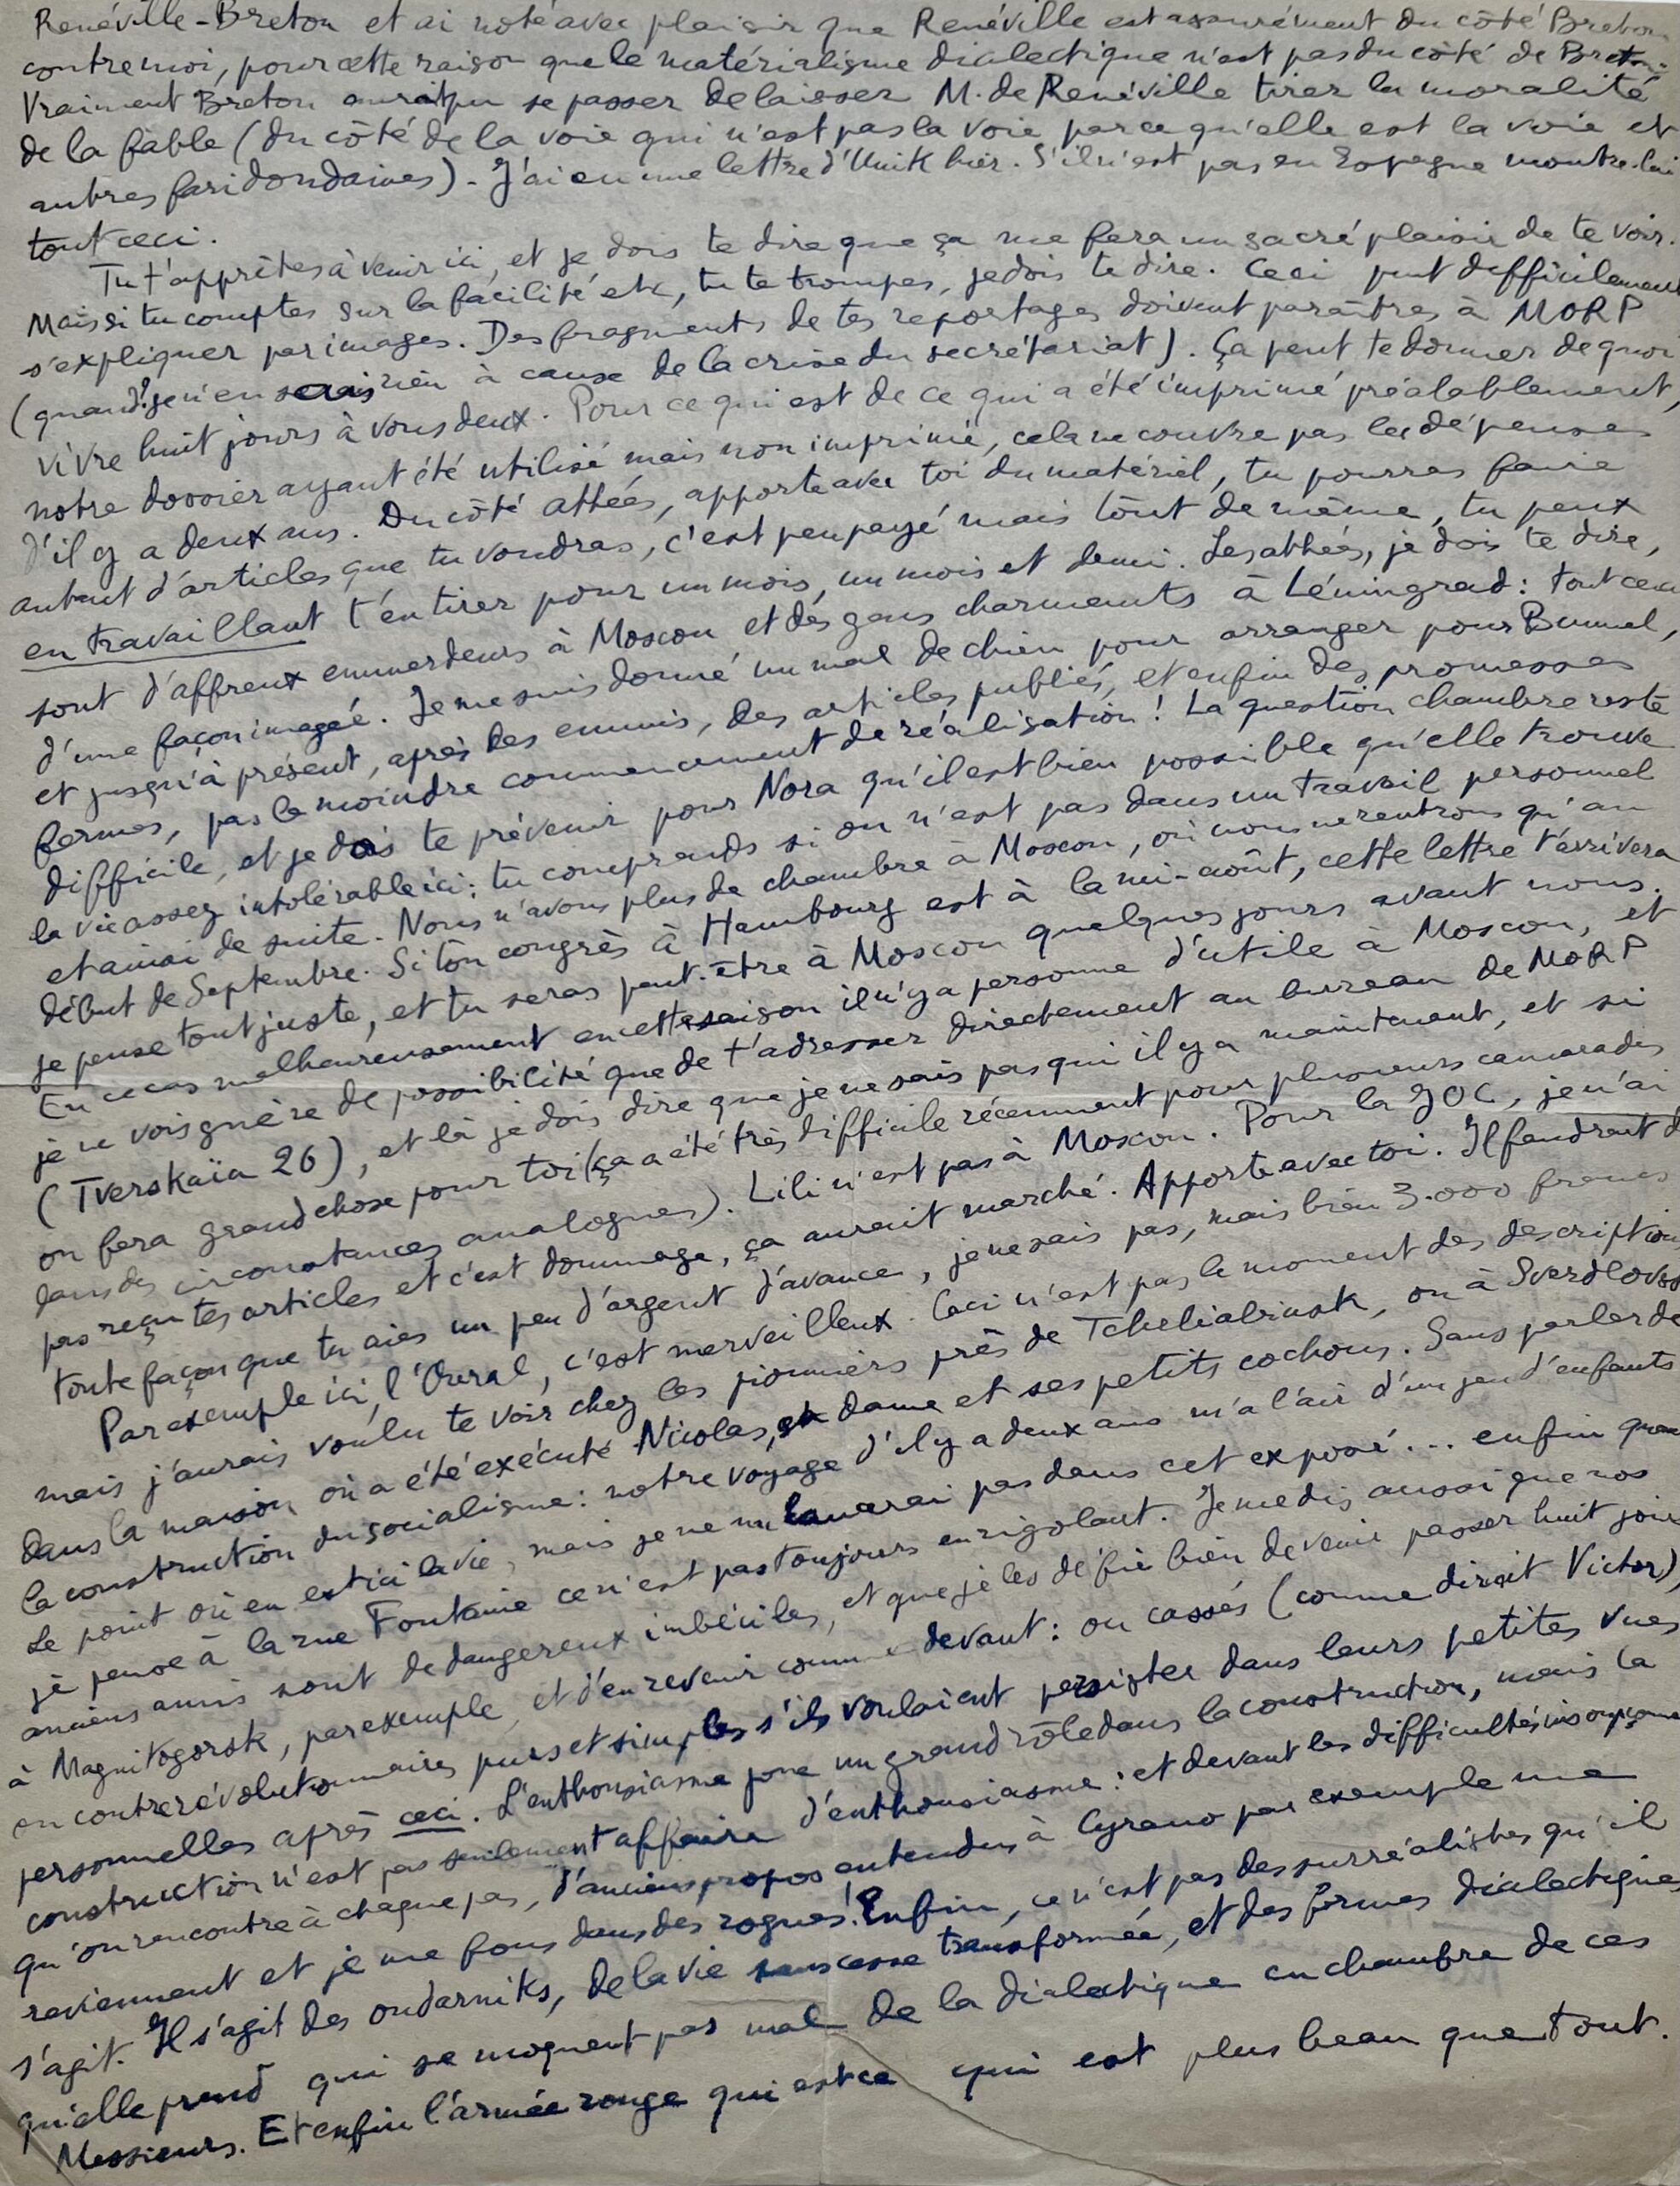 Renéville-Breton et ai noté avec plaisir que Renéville est assurément du côté Breton
contre moi, pour cette raison que le matérialisme dialectique n'est pas du côté de Breton.
Vraiment Breton aurait pu se passer de laisser M. de Renéville tirer la moralité
de la fable (du côté de la voie qui n'est pas la voie parce qu'elle est la voie et
autres faridondaines). J'ai eu une lettre d'Unik hier. S'il n'est pas en Espagne montre-lui
tout ceci.
Tu t'apprêtes à venir ici, et je dois te dire que ça me fera un sacré plaisir de te voir.
Mais si tu comptes sur la facilité etc, tu te trompes, je dois te dire. Ceci peut difficilement
s'expliquer par images. Des fragments de tes reportages doivent paraître à MORP
(quand? je n'en sais rien à cause de la crise du secrétariat). Ça peut te donner de quoi
vivre huit jours à vous deux. Pour ce qui est de ce qui a été imprimé préalablement,
notre dossier ayant été utilisé mais non imprimé, cela ne couvre pas les dépenses
d'il y a deux ans. Du côté athées, apporte avec toi du matériel, tu pourras faire
autant d'articles que tu voudras, c'est peu payé mais tout de même, tu peux
en travaillant t'en tirer pour un mois, un mois et demi. Les athées, je dois te dire,
sont d'affreux emmerdeurs à Moscou et des gens charmants à Léningrad : tout ceci
d'une façon imagée. Je me suis donné un mal de chien pour arranger pour Bunuel,
et jusqu'à présent, après des ennuis, des articles publiés, et enfin des promesses
fermes, pas le moindre commencement de réalisation ! La question chambre reste
difficile, et je dois te prévenir pour Nora qu'il est bien possible qu'elle trouve
la vie assez intolérable ici : tu comprends si on n'est pas dans un travail personnel
et ainsi de suite. Nous n'avons plus de chambre à Moscou, où nous ne rentrons qu'au
début de Septembre. Si ton congrès à Hambourg est à la mi-août, cette lettre t'arrivera
je pense tout juste, et tu seras peut-être à Moscou quelques jours avant nous.
En ce cas malheureusement en cette saison il n'y a personne d'utile à Moscou, et
je ne vois guère de possibilité que de t'adresser directement au bureau de MORP
(Tverskaïa 26), et là je dois dire que je ne sais pas qui il y a maintenant, et si
on fera grand chose pour toi (ça a été très difficile récemment pour plusieurs camarades
dans des circonstances analogues). Lili n'est pas à Moscou. Pour la JOC, je n'ai
pas reçu tes articles et c'est dommage, ça aurait marché. Apporte avec toi. Il faudrait de
toute façon que tu aies un peu d'argent d'avance, je ne sais pas, mais bien 3.000 francs
Par exemple ici, l'Oural, c'est merveilleux. Ceci n'est pas le moment des descriptions
mais j'aurais voulu te voir chez les pionniers près de Tcheliabinsk, ou à Sverdlovsk
dans la maison où a été exécuté Nicolas, sa dame et ses petits cochons. Sans parler de
la construction du socialisme : notre voyage d'il y a deux ans m'a l'air d'un jeu d'enfants
Le point où en est ici la vie, mais je ne me lancerai pas dans cet exposé... enfin quand
je pense à la rue Fontaine ce n'est pas toujours en rigolant. Je me dis aussi que nos
anciens amis sont de dangereux imbéciles, et que je les défie bien de venir passer huit jours
à Magnitogorsk, par exemple, et d'en revenir comme devant : ou cassés (comme dirait Victor),
ou contrerévolutionnaires purs et simples s'ils voulaient persister dans leurs petites vues
personnelles après ceci. L'enthousiasme joue un grand rôle dans la construction, mais la
construction n'est pas seulement affaire d'enthousiasme : et devant les difficultés insoupçonnées
qu'on rencontre à chaque pas, d'anciens propos entendus à Cyrano par exemple me
reviennent et je me fous dans des rognes ! Enfin, ce n'est pas des surréalistes qu'il
s'agit. Il s'agit des oudarniks, de la vie sans cesse transformée, et des formes dialectiques
qu'elle prend qui se moquent pas mal de la dialectique en chambre de ces
Messieurs. Et enfin l'armée rouge qui est ce qui est plus beau que tout.